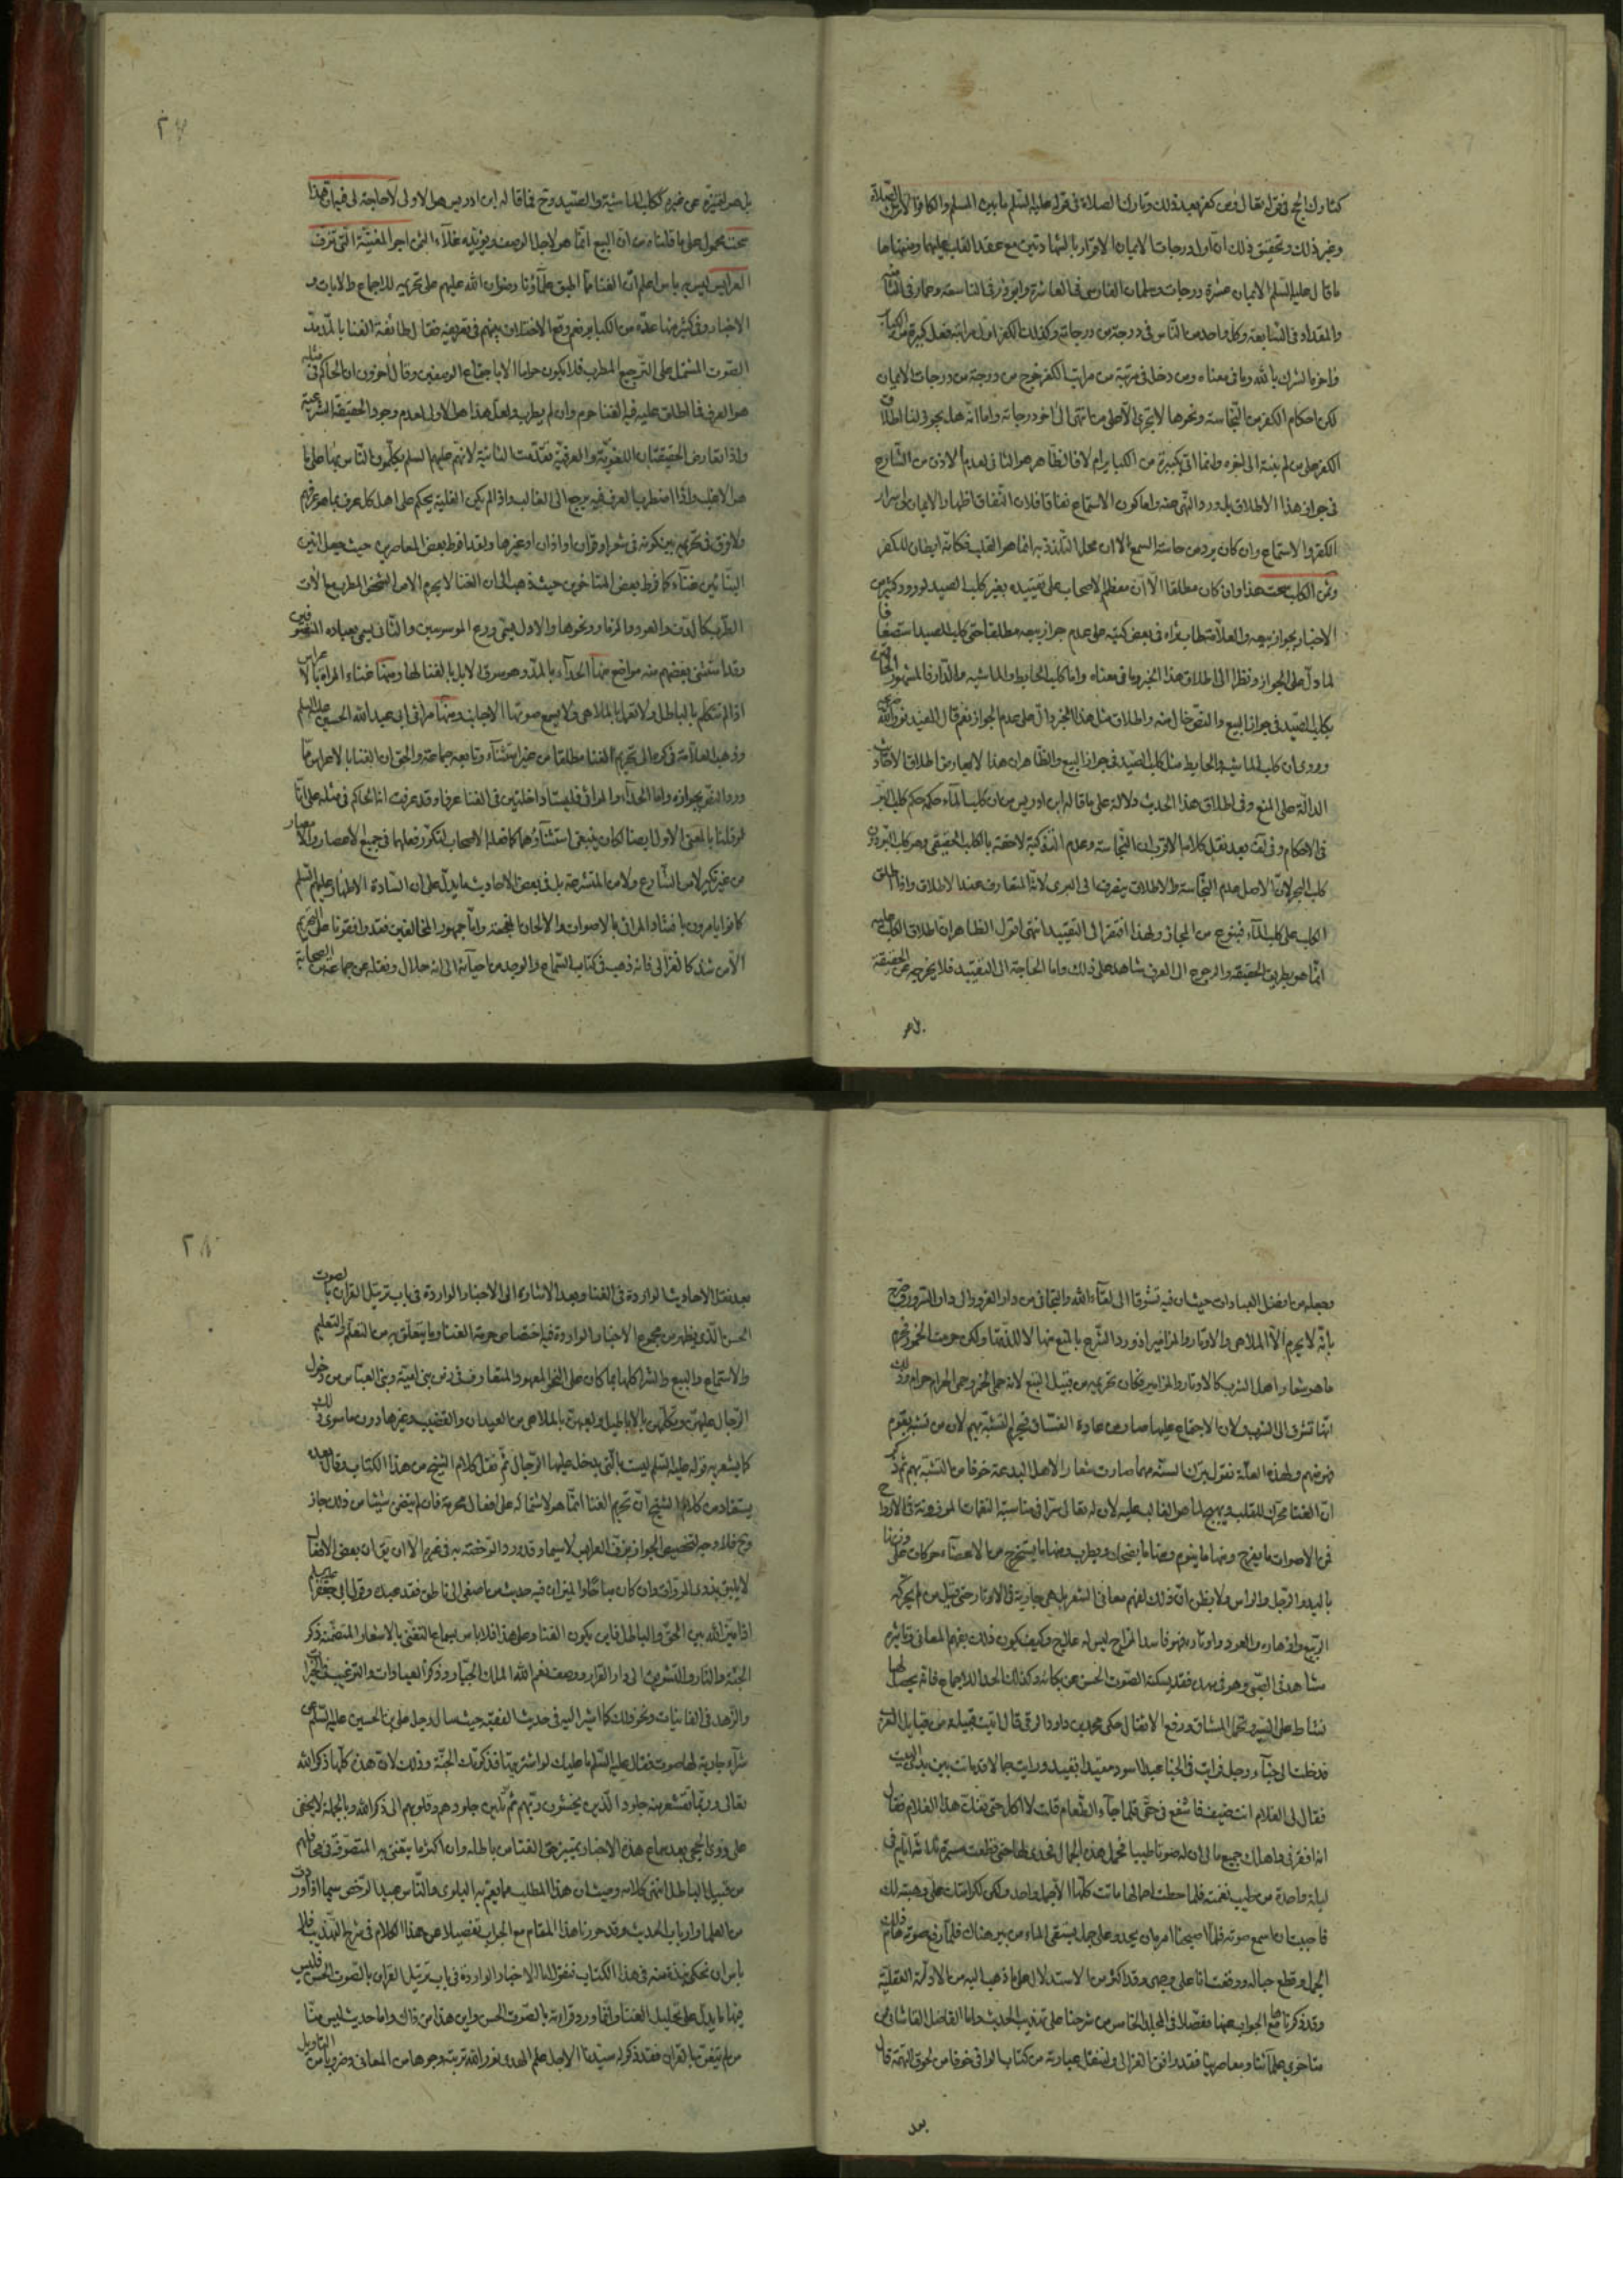 كتارك الحج في قوله تعالى فمن كفر بعد ذلك وتارك الصلاة في قوله عليه السلم ما بين المسلم والكافر الا ترك الصلاة
وغير ذلك وتحقيق ذلك ان اول درجات الايمان الاقرار بالشهادتين مع عقد القلب عليهما ومنتهاها
ما قال عليه السلم الايمان عشرة درجات وسلمان الفارسي في العاشرة وابو ذر في التاسعة وعمار في الثامنة
والمقداد في السابعة وكل واحد من الناس في درجة من درجاته وكذلك الكفر اول مراتبه فعل كبيرة من الكبائر
واخرها الشرك بالله وما في معناه ومن دخل في مرتبة من مراتب الكفر خرج من درجة من درجات الايمان
لكن احكام الكفر من النجاسة ونحوها لا تجري الا على من انتهى الى اخر درجاته واما انه هل يجوز لنا اطلاق
الكفر على من لم ينته الى اخره وانما اتى كبيرة من الكباير ام لا فالظاهر هو الثاني لعدم الاذن من الشارع
في جواز هذا الاطلاق بل ورد النهي عنه واما كون الاستماع نفاقا فلان النفاق اظهار الايمان واسرار
الكفر والاستماع وان كان يرد من حاسة السمع الا ان محل التلذذ به انما هو القلب فكانه ابطان للكفر
وثمن الكلب سحت هذا وان كان مطلقا الا ان معظم الاصحاب على تقييده بغير كلب الصيد لورود كثير من
الاخبار بجواز بيعه والعلامة طاب ثراه في بعض كتبه على عدم جواز بيعه مطلقا حتى كلب الصيد استضعافا
لما دل على الجواز ونظرا الى اطلاق هذا الخبر وما في معناه واما كلب الحايط والماشيه والدار فالمشهور الحاقهن
بكلب الصيد في جواز البيع والنص خال منه واطلاق مثل هذا الخبر دال على عدم الجواز نعم قال المفيد نور الله ضريحه
وروي ان كلب الماشية والحايط مثل كلب الصيد في جواز البيع والظاهر ان هذا لا يعارض اطلاق الاحاديث
الدالة على المنع وفي اطلاق هذا الحديث دلالة على ما قاله ابن ادريس من ان كلب الماء حكمه حكم كلب البر
في الاحكام وفي لف بعد نقل كلامه الاقرب ان النجاسة وعدم التذكية لاحقة بالكلب الحقيقي وهو كلب البر دون
كلب البحر لان الاصل عدم النجاسة والاطلاق ينصرف الى البري لانه المتعارف عند الاطلاق واذا اطلق
الكلب على كلب الماء فبنوع من المجاز ولهذا افتقر الى التقييد انتهى اقول الظاهر ان اطلاق الكلب عليه
انما هو بطريق الحقيقة والرجوع الى العرف شاهد على ذلك واما الحاجة الى التقييد فلا يخرجه عن الحقيقة
بل هو
بل هو لتميزه عن غيره ككلب الماشية والصيد وح فما قاله ابن ادريس هو الاولى
سحت محمول على ما قلناه من ان البيع انما هو لاجل الوصف ويؤيده غلاء الثمن اجر المغنية التي تزف
العرايس ليس به باس اعلم ان الغنا مما اطبق علماؤنا رضوان الله عليهم على تحريمه للاجماع والايات و
الاخبار وفي كثير منها عده من الكباير نعم وقع الاختلاف بينهم في تعريفه فقال طائفة الغنا بالمد مد
الصوت المشتمل على الترجيع المطرب فلا يكون حراما الا باجتماع الوصفين وقال اخرون ان الحاكم في مثله
هو العرف فما اطلق عليه فيه الغنا حرم وان لم يطرب ولعل هذا هو الاولى لعدم وجود الحقيقة الشرعية
واذا تعارض الحقيقتان اللغوية والعرفية تقدمت الثانية لانهم عليهم السلم يكلمون الناس بها على ما
هو الاغلب واذا اضطرب العرف فيه يرجع الى الغالب واذا لم يكن اغلبية يحكم على اهل كل عرف بما هو عرفهم
ولا فرق في تحريمه بين كونه في شعر او قران او اذان او غيرها ولقد افرط بعض المعاصرين حيث جعل انين
البنائين غناء كما فرط بعض المتاخرين حيث ذهب الى ان الغنا لا يحرم الا من الشخص المطرب مع الات
الطرب كالدف والعود والمزمار ونحوها والاول يسمى ورع الموسوسين والثاني يسمى بعباده المقصرين
وقد استثنى بعضهم منه مواضع منها الحداء بالمد وهو سوق الابل بالغنا لها ومنها غناء المراة بالاعراس
اذا لم تتكلم بالباطل ولا تعمل بالملاهي ولا يسمع صوتها الاجانب ومنها مراثي ابي عبد الله الحسين عليه السلم
وذهب العلامة في كره الى تحريم الغنا مطلقا من غير استثناء وتابعه جماعة والحق ان الغنا بالاعراس مما
ورد النص بجوازه واما الحداء والمراثي فليستا داخلتين في الغنا عرفا وقد عرفت انه الحاكم في مثله على انا
لو قلنا بالمعنى الاول ايضا لكان ينبغي استثناؤهما كما فعله الاصحاب لتكرر فعلهما في جميع الاعصار والامصار
من غير نكير لا من الشارع ولا من المتشرعة بل في بعض الاحاديث ما يدل على ان السادة الاطهار عليهم السلم
كانوا يامرون بانشاد المراثي بالاصوات والالحان المحزنة واما جمهور المخالفين فقد وافقونا على التحريم
الا من شذ كالغزالي فانه ذهب في كتاب السماع والوجد من احيائه الى انه حلال ونقله عن جماعة من الصحابة
٢٧
وجعله من افضل العبادات حيث ان فيه تشوقا الى لقاء الله والتجافي من دار الغرور الى دار السرور وصرح
بانه لا يحرم الا الملاهي والاوتار والمزامير اذ ورد الشرع بالمنع منها لا للذتها ولكن حرمت الخمور فحرم
ما هو شعار اهل الشرب كالاوتار والمزامير فكان تحريمه من قبيل التبع لانه حمى الخمر وحمى الحرام حرام وذلك
انها تشوق الى الشرب ولان الاجتماع عليها صار من عادة الفساق فيحرم التشبه بهم لان من تشبه بقوم
فهو منهم ولهذه العلة نقول بترك السنة مهما صارت شعارا لاهل البدعة خوفا من التشبه بهم ثم ذكر
ان الغنا محرك للقلب ويهيج لما هو الغالب عليه لان لله تعالى سرا في مناسبة النغمات الموزونة في الارواح
فمن الاصوات ما يفرح ومنها ما ينوم ومنها ما يضحك ويطرب ومنها ما يستخرج من الاعضاء حركات على وزنها
باليد والرجل والراس ولا يظن ان ذلك لفهم معاني الشعر بل هي جارية في الاوتار حتى قيل من لم يحركه
الربيع وازهاره والعود واوتاره فهو فاسد المزاج ليس له علاج وكيف يكون ذلك بفهم المعاني وتاثيره
مشاهد في الصبي وهو في مهده فقد يسكته الصوت الحسن عن بكائه وكذلك الحدا للاجماع فانه يحصل لها
نشاط على السير وتحمل المشاق ورفع الاثقال حكى محمد بن داود الرقي قال اتيت قبيلة من قبايل العرب
فدخلت الى خباء رجل فرايت في الخباء عبدا اسود مقيدا بقيد ورايت جمالا قد ماتت بين يدي البيت
فقال لي الغلام انت ضيف فاشفع في حقي فلما جاء الطعام قلت لا اكل حتى تفك هذا الغلام فقال
انه افقرني واهلك جميع مالي ان له صوتا طيبا فحمل هذه الجمال فحدى لها حتى قطعت مسيرة ثلثة ايام في
ليلة واحدة من طيب نغمته فلما حطت احمالها ماتت كلها الا جملا واحد ولكن لكرامتك علي وهبته لك
فاحببت ان اسمع صوته فلما اصبحنا امره ان يحدو على جمل يستقى الماء من بير هناك فلما رفع صوته هام ذلك
الجمل وقطع حباله ووقعت انا على وجهي وقد اكثر من الاستدلال على ما ذهب اليه من الادلة العقلية
وقد ذكرناها مع الجواب عنها مفصلا في المجلد الخامس من شرحنا على تهذيب الحديث واما الفاضل القاشاني من
متاخري علمائنا ومعاصرينا فقد وافق الغزالي ولننقل عبارته من كتاب الوافي خوفا من لحوق التهمة قال
بعد
بعد نقل الاحاديث الواردة في الغنا وبعد الاشارة الى الاخبار الواردة في باب ترتيل القران بالصوت
الحسن الذي يظهر من مجموع الاخبار الواردة فيه اختصاص حرمة الغنا وما يتعلق به من التعلم والتعليم
والاستماع والبيع والشرا كلها بما كان على النحو المعهود المتعارف في زمن بني امية وبني العباس من دخول
الرجال عليهن وتكلمهن بالاباطيل ولعبهن بالملاهي من العيدان والقضيب وغيرها دون ما سوى ذلك
كما يشعر به قوله عليه السلم ليست بالتي يدخل عليها الرجال ثم نقل كلام الشيخ من هذا الكتاب وقال بعده
يستفاد من كلام الشيخ ان تحريم الغنا انما هو لاشتماله على افعال محرمة فان لم يتضمن شيئا من ذلك جاز
وح فلا وجه لتخصيص الجواز بزف العرايس لا سيما وقد ورد الرخصة به في غيره الا ان يق ان بعض الافعال
لا يليق بذوي المروات وان كان مباحا والميزان فيه حديث من اصغى الى ناطق فقد عبده وقول ابي جعفر عليه السلم
اذا ميز الله بين الحق والباطل فاين يكون الغنا وعلى هذا فلا باس بسماع التغني بالاشعار المتضمنة ذكر
الجنة والنار والتشويق الى دار القرار ووصف نعم الله الملك الجبار وذكر العبادات والترغيب في الخيرات
والزهد في الفانيات ونحو ذلك كما اشير اليه في حديث الفقيه حيث سال رجل علي بن الحسين عليه السلم عن
شراء جارية لها صوت فقال عليه السلم ما عليك لو اشتريتها فذكرتك الجنة وذلك لان هذه كلها ذكر الله
تعالى وربما تقشعر منه جلود الذين يخشون ربهم ثم تلين جلودهم وقلوبهم الى ذكر الله وبالجملة لا يخفى
على ذوي الحجى بعد سماع هذه الاخبار تمييز حق الغنا من باطله وان اكثر ما يتغنى به المتصوفة في محافلهم
من قبيل الباطل انتهى كلامه وحيث ان هذا المطلب مما يعم به البلوى والناس عبيد الرخص سيما اذا وردت
من العلما وارباب الحديث وقد حررنا هذا المقام مع الجواب تفصيلا عن هذا الكلام في شرح التهذيب فلا
باس ان نحكي نبذة منه في هذا الكتاب فنقول اما الاخبار الواردة في باب ترتيل القران بالصوت الحسن فليس
فيها ما يدل على تحليل الغنا وانما ورد قراءته بالصوت الحسن واين هذا من ذاك واما حديث ليس منا
من لم يتغن بالقران فقد ذكر له سيدنا الاجل علم الهدى نور الله تربته وجوها من المعاني وضروبا من التاويل
٢٨